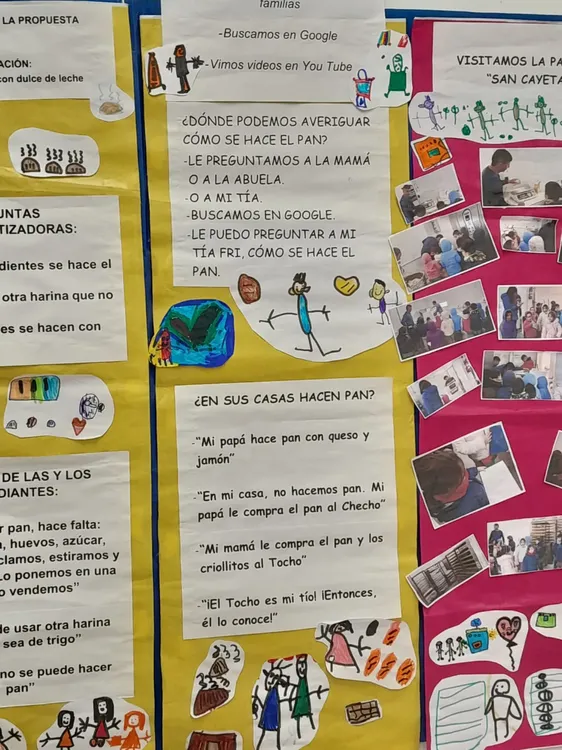 LA PROPUESTA
ACIÓN:
con dulce de leche
UNTAS
TIZADORAS:
dientes se hace el
otra harina que no
es se hacen con
DE LAS Y LOS
DIANTES:
r pan, hace falta:
, huevos, azúcar,
clamos, estiramos y
Lo ponemos en una
o vendemos"
de usar otra harina
sea de trigo"
no se puede hacer
pan"
familias
-Buscamos en Google
-Vimos videos en You Tube
¿DÓNDE PODEMOS AVERIGUAR
CÓMO SE HACE EL PAN?
-LE PREGUNTAMOS A LA MAMÁ
O A LA ABUELA.
-O A MI TÍA.
-BUSCAMOS EN GOOGLE.
-LE PUEDO PREGUNTAR A MI
TÍA FRI, CÓMO SE HACE EL
PAN.
¿EN SUS CASAS HACEN PAN?
-"Mi papá hace pan con queso y
jamón"
-"En mi casa, no hacemos pan. Mi
papá le compra el pan al Checho"
-"Mi mamá le compra el pan y los
criollitos al Tocho"
-"¡El Tocho es mi tío! ¡Entonces,
él lo conoce!"
VISITAMOS LA PA
"SAN CAYETA